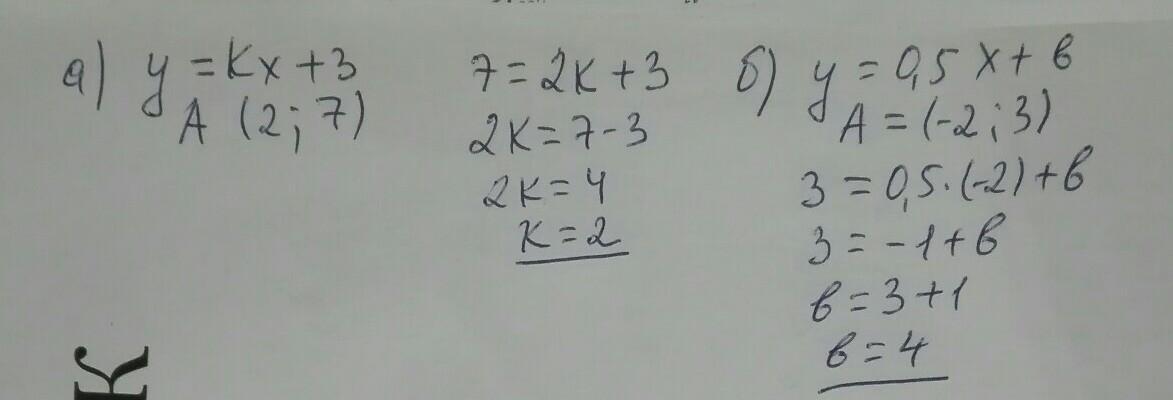 а) y = kx + 3
A (2; 7)
7 = 2k + 3
2k = 7 - 3
2k = 4
k = 2
б) y = 0,5 x + в
A = (-2; 3)
3 = 0,5 · (-2) + в
3 = -1 + в
в = 3 + 1
в = 4
K